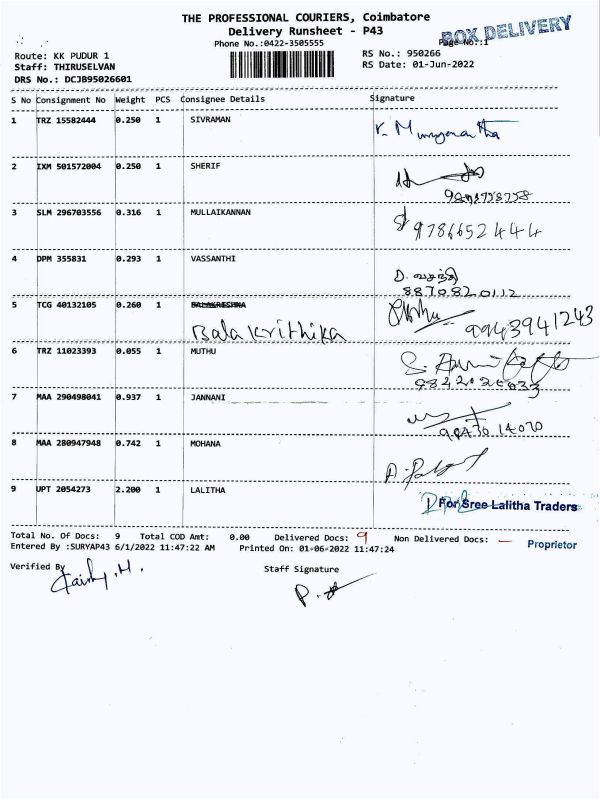 THE PROFESSIONAL COURIERS, Coimbatore
Delivery Runsheet - P43
BOX DELIVERY
Phone No.:0422-3505555
Page No.:1
Route: KK PUDUR 1
RS No.: 950266
Staff: THIRUSELVAN
RS Date: 01-Jun-2022
DRS No.: DCJB95026601
S No Consignment No Weight PCS Consignee Details Signature
1 TRZ 15582444 0.250 1 SIVRAMAN
2 IXM 501572004 0.250 1 SHERIF
3 SLM 296703556 0.316 1 MULLAIKANNAN
9786652444
4 DPM 355831 0.293 1 VASSANTHI
D. வசந்தி
8870820112
5 TCG 40132105 0.260 1 BALAKRISHNA
Bala Krithika
9943941243
6 TRZ 11023393 0.055 1 MUTHU
7 MAA 290498041 0.937 1 JANNANI
8 MAA 280947948 0.742 1 MOHANA
9 UPT 2054273 2.200 1 LALITHA
For Sree Lalitha Traders
Total No. Of Docs: 9 Total COD Amt: 0.00 Delivered Docs: 9 Non Delivered Docs: —
Proprietor
Entered By :SURYAP43 6/1/2022 11:47:22 AM Printed On: 01-06-2022 11:47:24
Verified By
Staff Signature